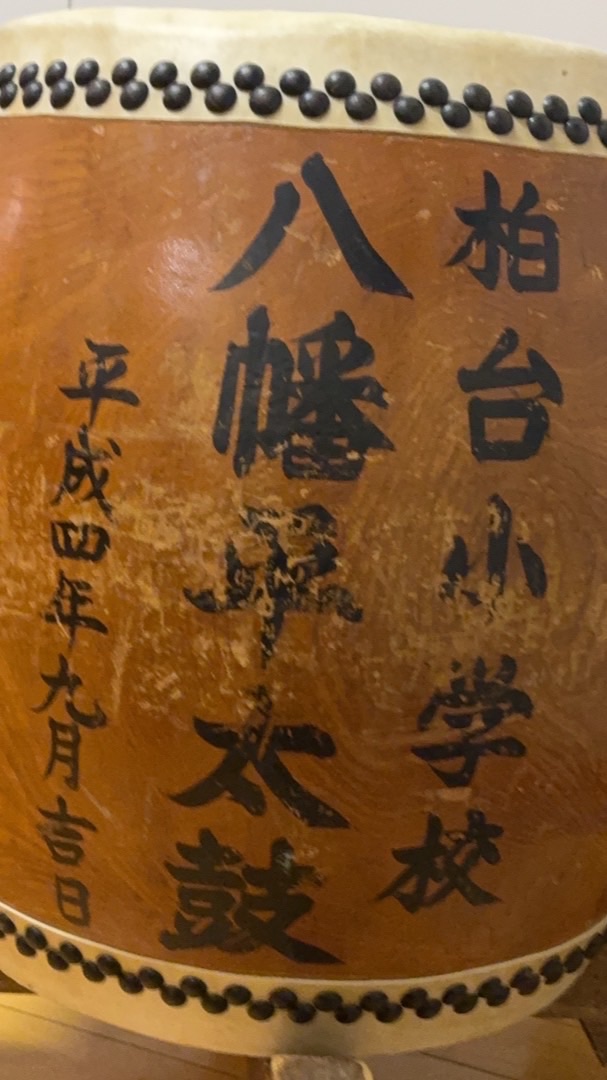 柏台小学校
八幡平太鼓
平成四年九月吉日